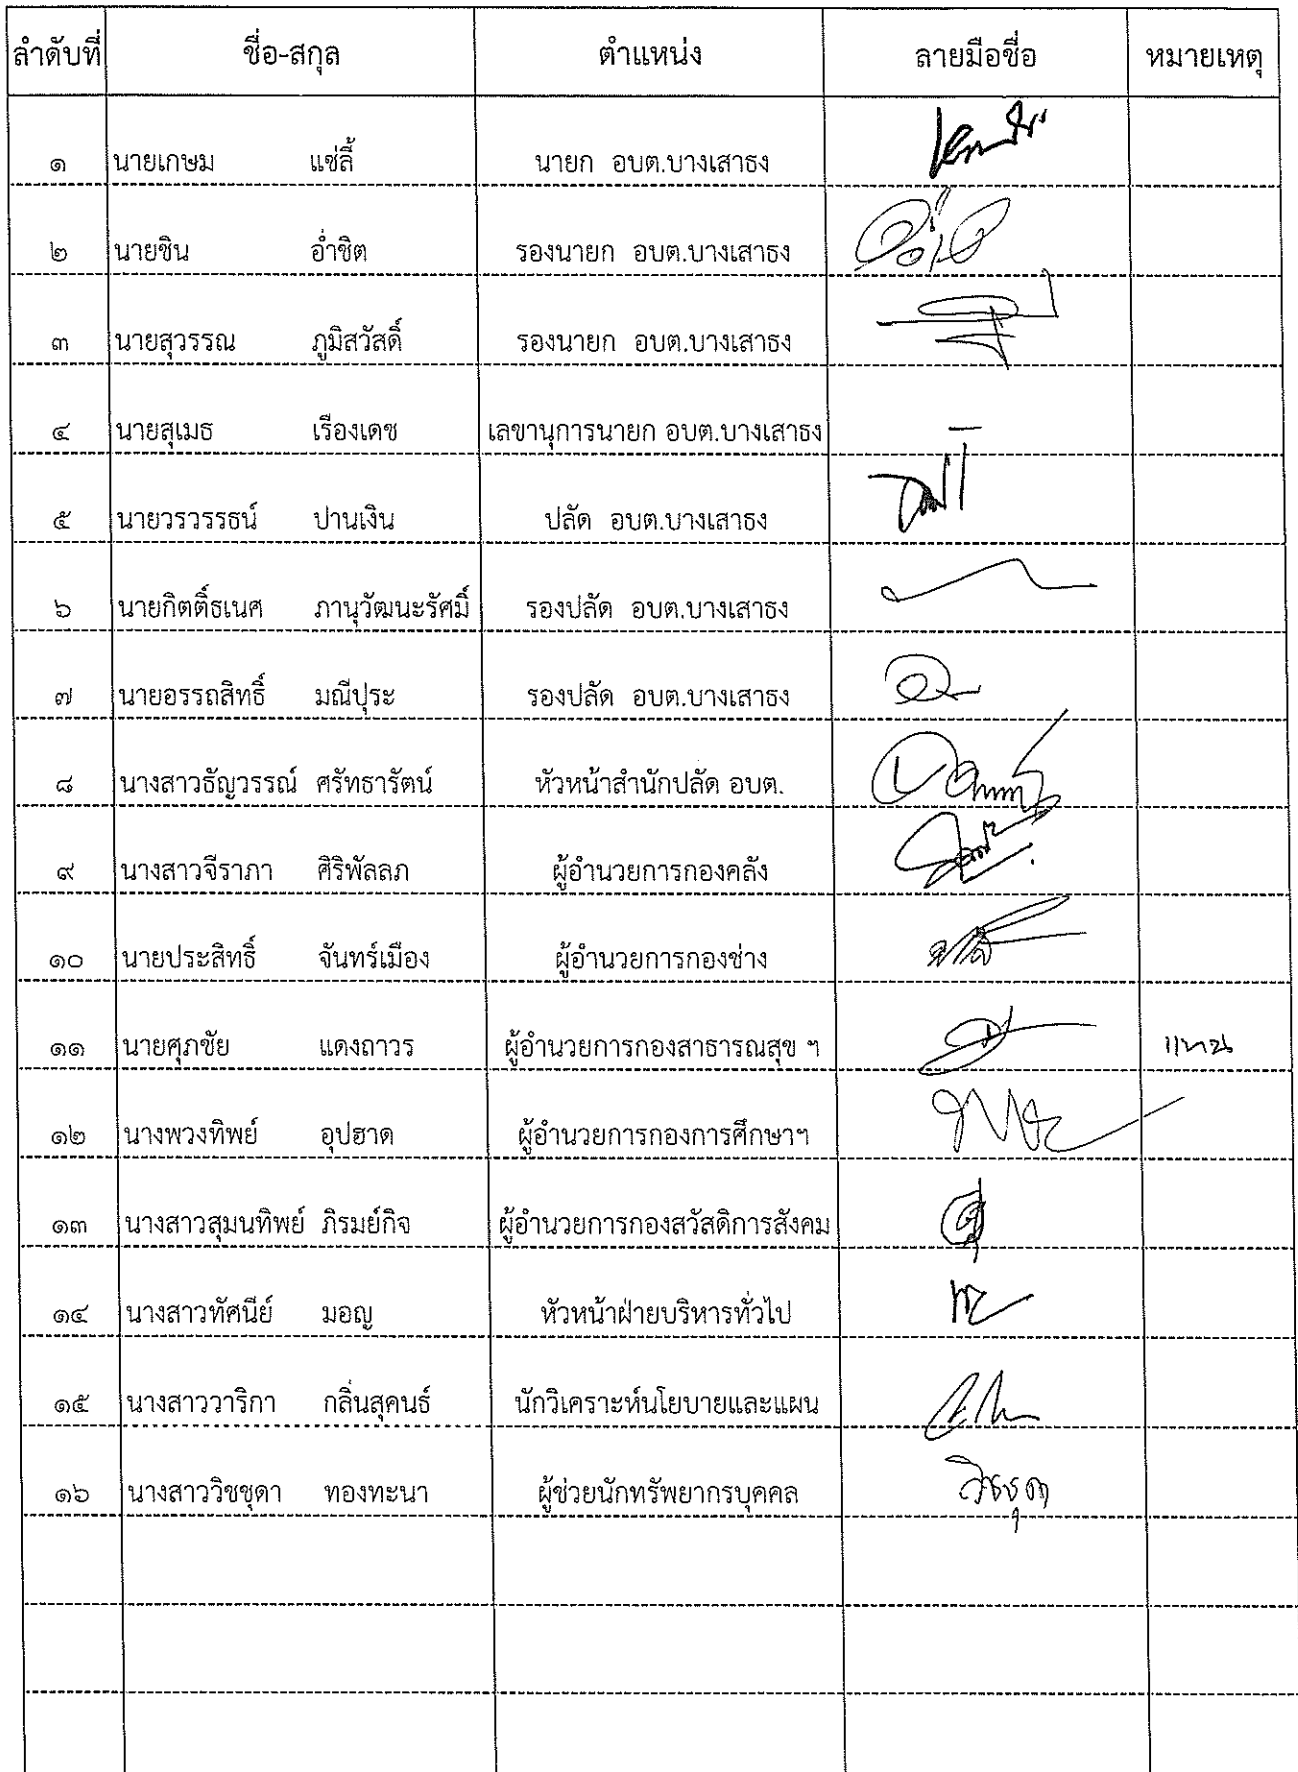 ลำดับที่ ชื่อ-สกุล ตำแหน่ง ลายมือชื่อ หมายเหตุ
๑ นายเกษม แซ่ลี้ นายก อบต.บางเสาธง
๒ นายชิน อ่ำชิต รองนายก อบต.บางเสาธง
๓ นายสุวรรณ ภูมิสวัสดิ์ รองนายก อบต.บางเสาธง
๔ นายสุเมธ เรืองเดช เลขานุการนายก อบต.บางเสาธง –
๕ นายวรวรรธน์ ปานเงิน ปลัด อบต.บางเสาธง
๖ นายกิตติ์ธเนศ ภานุวัฒนะรัศมิ์ รองปลัด อบต.บางเสาธง
๗ นายอรรถสิทธิ์ มณีปุระ รองปลัด อบต.บางเสาธง
๘ นางสาวธัญวรรณ์ ศรัทธารัตน์ หัวหน้าสำนักปลัด อบต.
๙ นางสาวจีราภา ศิริพัลลภ ผู้อำนวยการกองคลัง
๑๐ นายประสิทธิ์ จันทร์เมือง ผู้อำนวยการกองช่าง
๑๑ นายศุภชัย แดงถาวร ผู้อำนวยการกองสาธารณสุข ฯ แทน
๑๒ นางพวงทิพย์ อุปฮาด ผู้อำนวยการกองการศึกษาฯ
๑๓ นางสาวสุมนทิพย์ ภิรมย์กิจ ผู้อำนวยการกองสวัสดิการสังคม
๑๔ นางสาวทัศนีย์ มอญ หัวหน้าฝ่ายบริหารทั่วไป
๑๕ นางสาววาริกา กลิ่นสุคนธ์ นักวิเคราะห์นโยบายและแผน
๑๖ นางสาววิชชุดา ทองทะนา ผู้ช่วยนักทรัพยากรบุคคล วิชชุดา